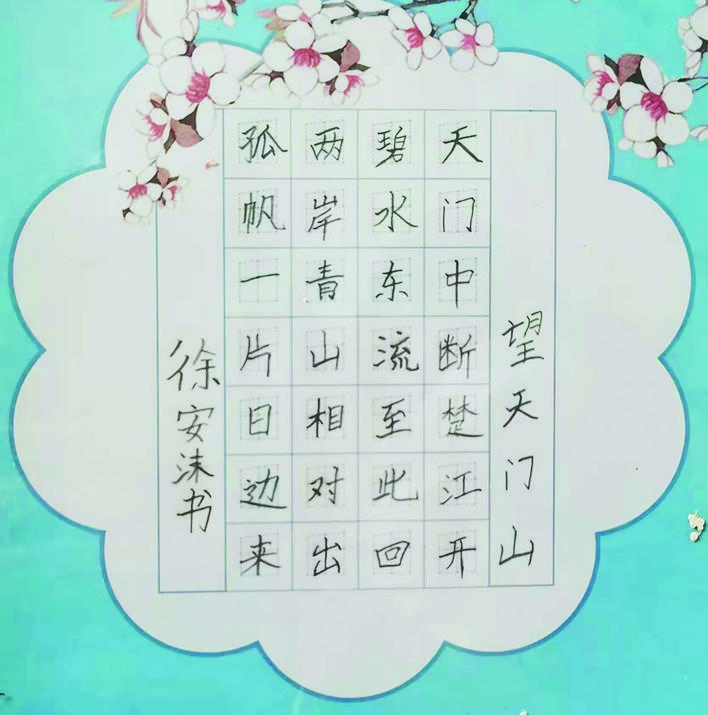 望天门山
天门中断楚江开
碧水东流至此回
两岸青山相对出
孤帆一片日边来
徐安沫书